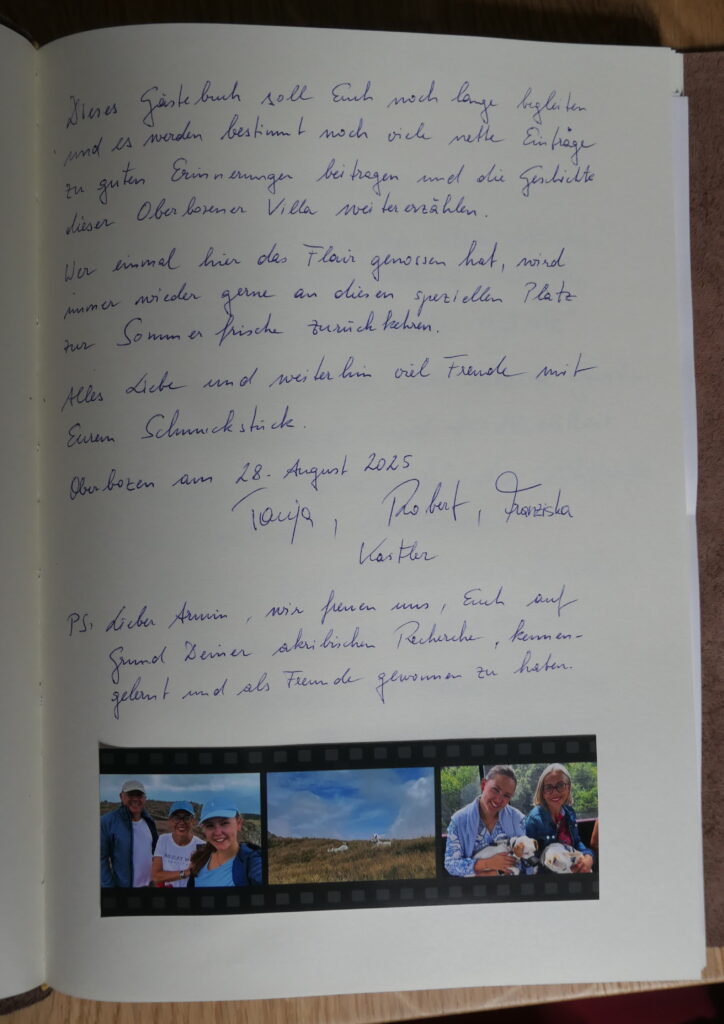 Dieses Gästebuch soll Euch noch lange begleiten
und es werden bestimmt noch viele nette Einträge
zu guten Erinnerungen beitragen und die Geschichte
dieser Oberbozener Villa weitererzählen.
Wer einmal hier das Flair genossen hat, wird
immer wieder gerne an diesen speziellen Platz
zur Sommerfrische zurückkehren.
Alles Liebe und weiterhin viel Freude mit
Eurem Schmuckstück.
Oberbozen am 28. August 2025
Tanja, Robert, Franziska
Kastler
PS: Lieber Armin, wir freuen uns, Euch auf
Grund Deiner akribischen Recherche, kennen-
gelernt und als Freunde gewonnen zu haben.